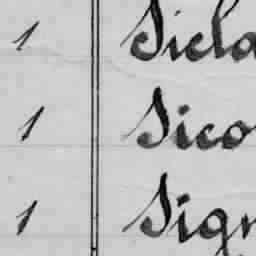 1 Sicla
1 Sico
1 Sign